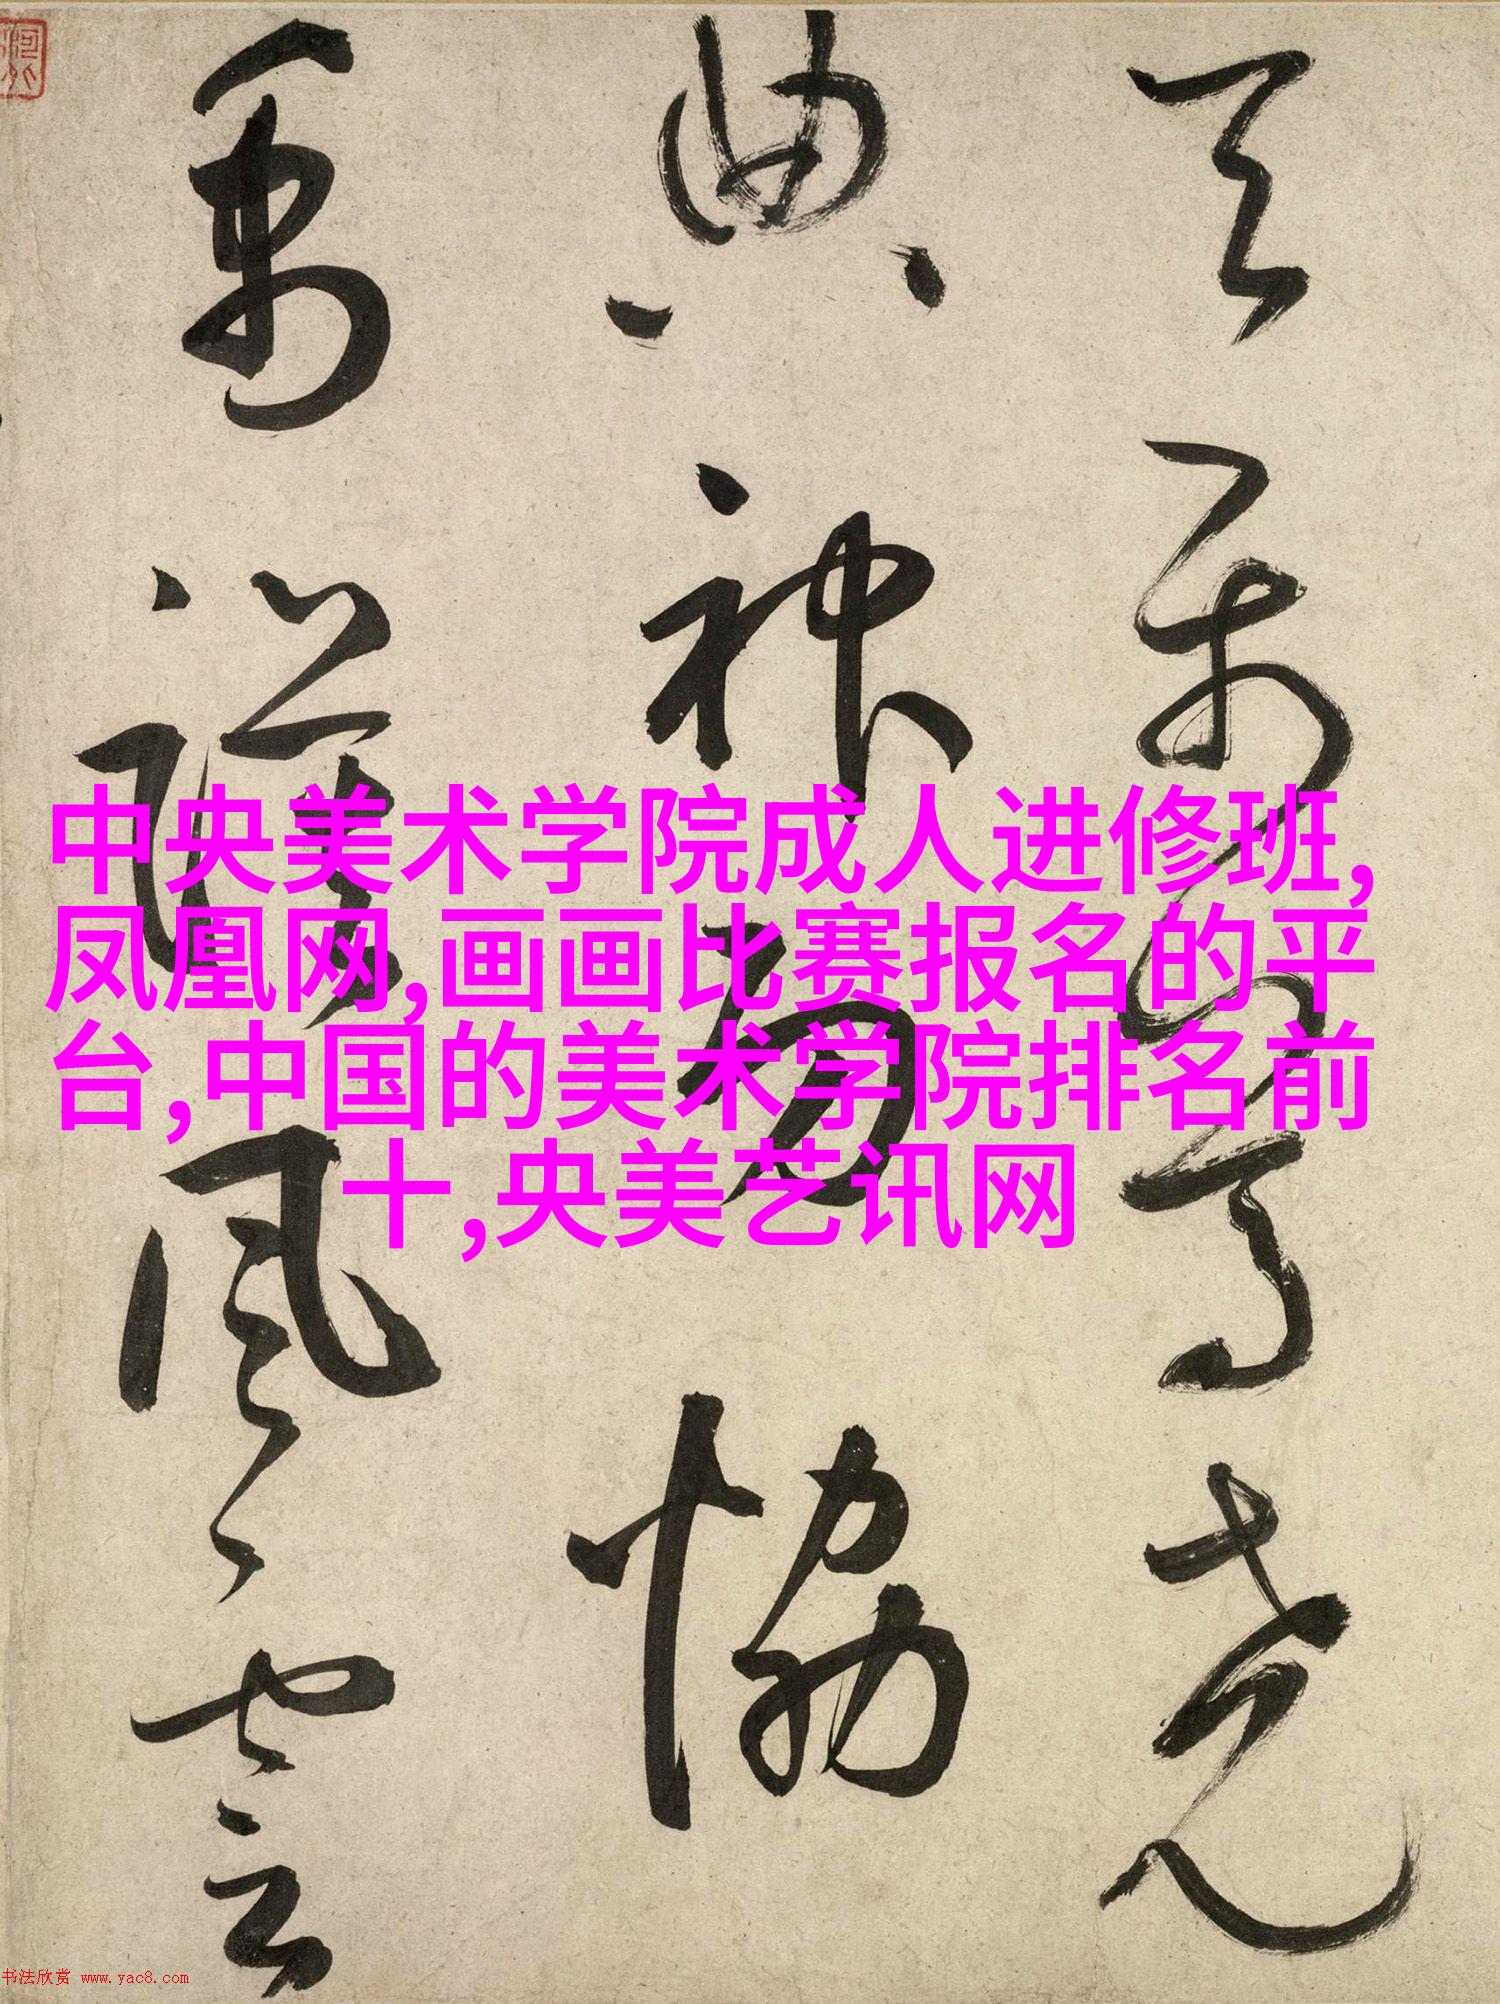 中央美术学院成人进修班,
凤凰网,画画比赛报名的平
台,中国的美术学院排名前
十,央美艺讯网
典神協
禹謨風雲
书法欣赏 www.yac8.com